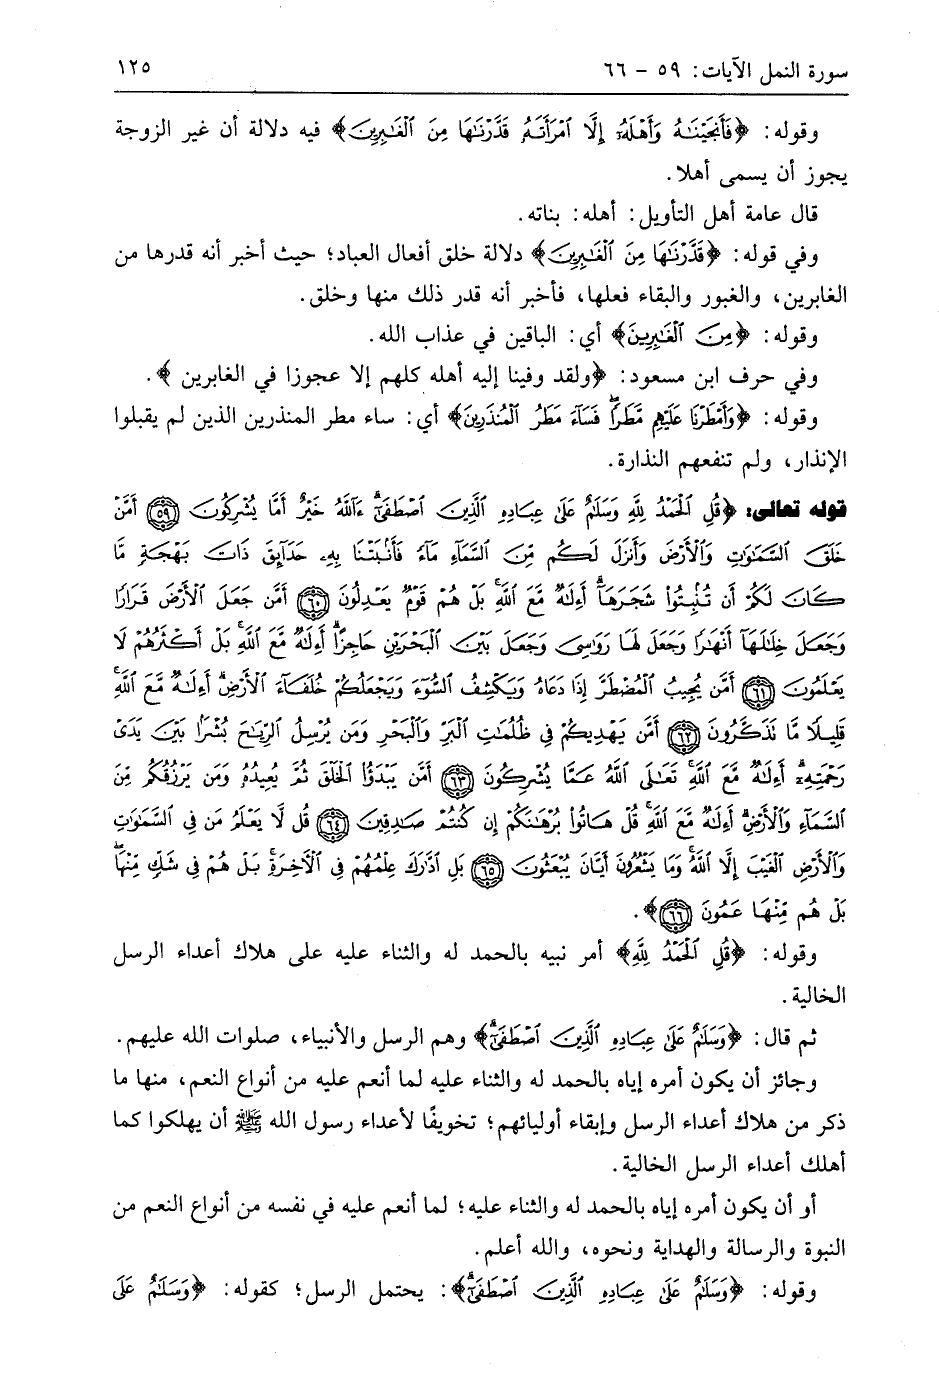 سورة النمل الآيات: ٥٩ - ٦٦ ١٢٥
وقوله: ﴿فَأَنجَيْنَٰهُ وَأَهْلَهُۥٓ إِلَّا ٱمْرَأَتَهُۥ قَدَّرْنَٰهَا مِنَ ٱلْغَٰبِرِينَ﴾ فيه دلالة أن غير الزوجة
يجوز أن يسمى أهلا.
قال عامة أهل التأويل: أهله: بناته.
وفي قوله: ﴿قَدَّرْنَٰهَا مِنَ ٱلْغَٰبِرِينَ﴾ دلالة خلق أفعال العباد؛ حيث أخبر أنه قدرها من
الغابرين، والغبور والبقاء فعلها، فأخبر أنه قدر ذلك منها وخلق.
وقوله: ﴿مِنَ ٱلْغَٰبِرِينَ﴾ أي: الباقين في عذاب الله.
وفي حرف ابن مسعود: ﴿ولقد وفينا إليه أهله كلهم إلا عجوزا في الغابرين﴾.
وقوله: ﴿وَأَمْطَرْنَا عَلَيْهِم مَّطَرًۭا ۖ فَسَآءَ مَطَرُ ٱلْمُنذَرِينَ﴾ أي: ساء مطر المنذرين الذين لم يقبلوا
الإنذار، ولم تنفعهم النذارة.
قوله تعالى: ﴿قُلِ ٱلْحَمْدُ لِلَّهِ وَسَلَٰمٌ عَلَىٰ عِبَادِهِ ٱلَّذِينَ ٱصْطَفَىٰٓ ۗ ءَآللَّهُ خَيْرٌ أَمَّا يُشْرِكُونَ ٥٩ أَمَّنْ
خَلَقَ ٱلسَّمَٰوَٰتِ وَٱلْأَرْضَ وَأَنزَلَ لَكُم مِّنَ ٱلسَّمَآءِ مَآءً فَأَنۢبَتْنَا بِهِۦ حَدَآئِقَ ذَاتَ بَهْجَةٍ مَّا
كَانَ لَكُمْ أَن تُنۢبِتُوا۟ شَجَرَهَآ ۗ أَءِلَٰهٌ مَّعَ ٱللَّهِ ۚ بَلْ هُمْ قَوْمٌ يَعْدِلُونَ ٦٠ أَمَّن جَعَلَ ٱلْأَرْضَ قَرَارًا
وَجَعَلَ خِلَٰلَهَآ أَنْهَٰرًا وَجَعَلَ لَهَا رَوَٰسِىَ وَجَعَلَ بَيْنَ ٱلْبَحْرَيْنِ حَاجِزًا ۗ أَءِلَٰهٌ مَّعَ ٱللَّهِ ۚ بَلْ أَكْثَرُهُمْ لَا
يَعْلَمُونَ ٦١ أَمَّن يُجِيبُ ٱلْمُضْطَرَّ إِذَا دَعَاهُ وَيَكْشِفُ ٱلسُّوٓءَ وَيَجْعَلُكُمْ خُلَفَآءَ ٱلْأَرْضِ ۗ أَءِلَٰهٌ مَّعَ ٱللَّهِ ۚ
قَلِيلًا مَّا تَذَكَّرُونَ ٦٢ أَمَّن يَهْدِيكُمْ فِى ظُلُمَٰتِ ٱلْبَرِّ وَٱلْبَحْرِ وَمَن يُرْسِلُ ٱلرِّيَٰحَ بُشْرًۢا بَيْنَ يَدَىْ
رَحْمَتِهِۦٓ ۗ أَءِلَٰهٌ مَّعَ ٱللَّهِ ۚ تَعَٰلَى ٱللَّهُ عَمَّا يُشْرِكُونَ ٦٣ أَمَّن يَبْدَؤُا۟ ٱلْخَلْقَ ثُمَّ يُعِيدُهُۥ وَمَن يَرْزُقُكُم مِّنَ
ٱلسَّمَآءِ وَٱلْأَرْضِ ۗ أَءِلَٰهٌ مَّعَ ٱللَّهِ ۚ قُلْ هَاتُوا۟ بُرْهَٰنَكُمْ إِن كُنتُمْ صَٰدِقِينَ ٦٤ قُل لَّا يَعْلَمُ مَن فِى ٱلسَّمَٰوَٰتِ
وَٱلْأَرْضِ ٱلْغَيْبَ إِلَّا ٱللَّهُ ۚ وَمَا يَشْعُرُونَ أَيَّانَ يُبْعَثُونَ ٦٥ بَلِ ٱدَّٰرَكَ عِلْمُهُمْ فِى ٱلْآخِرَةِ ۚ بَلْ هُمْ فِى شَكٍّ مِّنْهَا ۖ
بَلْ هُم مِّنْهَا عَمُونَ ٦٦﴾.
وقوله: ﴿قُلِ ٱلْحَمْدُ لِلَّهِ﴾ أمر نبيه بالحمد له والثناء عليه على هلاك أعداء الرسل
الخالية.
ثم قال: ﴿وَسَلَٰمٌ عَلَىٰ عِبَادِهِ ٱلَّذِينَ ٱصْطَفَىٰٓ ۗ﴾ وهم الرسل والأنبياء، صلوات الله عليهم.
وجائز أن يكون أمره إياه بالحمد له والثناء عليه لما أنعم عليه من أنواع النعم، منها ما
ذكر من هلاك أعداء الرسل وإبقاء أوليائهم؛ تخويفًا لأعداء رسول الله ﷺ أن يهلكوا كما
أهلك أعداء الرسل الخالية.
أو أن يكون أمره إياه بالحمد له والثناء عليه؛ لما أنعم عليه في نفسه من أنواع النعم من
النبوة والرسالة والهداية ونحوه، والله أعلم.
وقوله: ﴿وَسَلَٰمٌ عَلَىٰ عِبَادِهِ ٱلَّذِينَ ٱصْطَفَىٰٓ ۗ﴾: يحتمل الرسل؛ كقوله: ﴿وَسَلَٰمٌ عَلَى